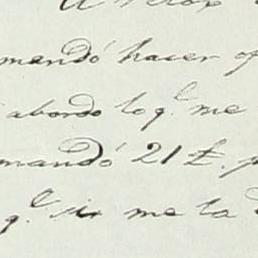 mandó hacer of
abordo lo q.^l me
mandó 21 £. p
q.^l se me la